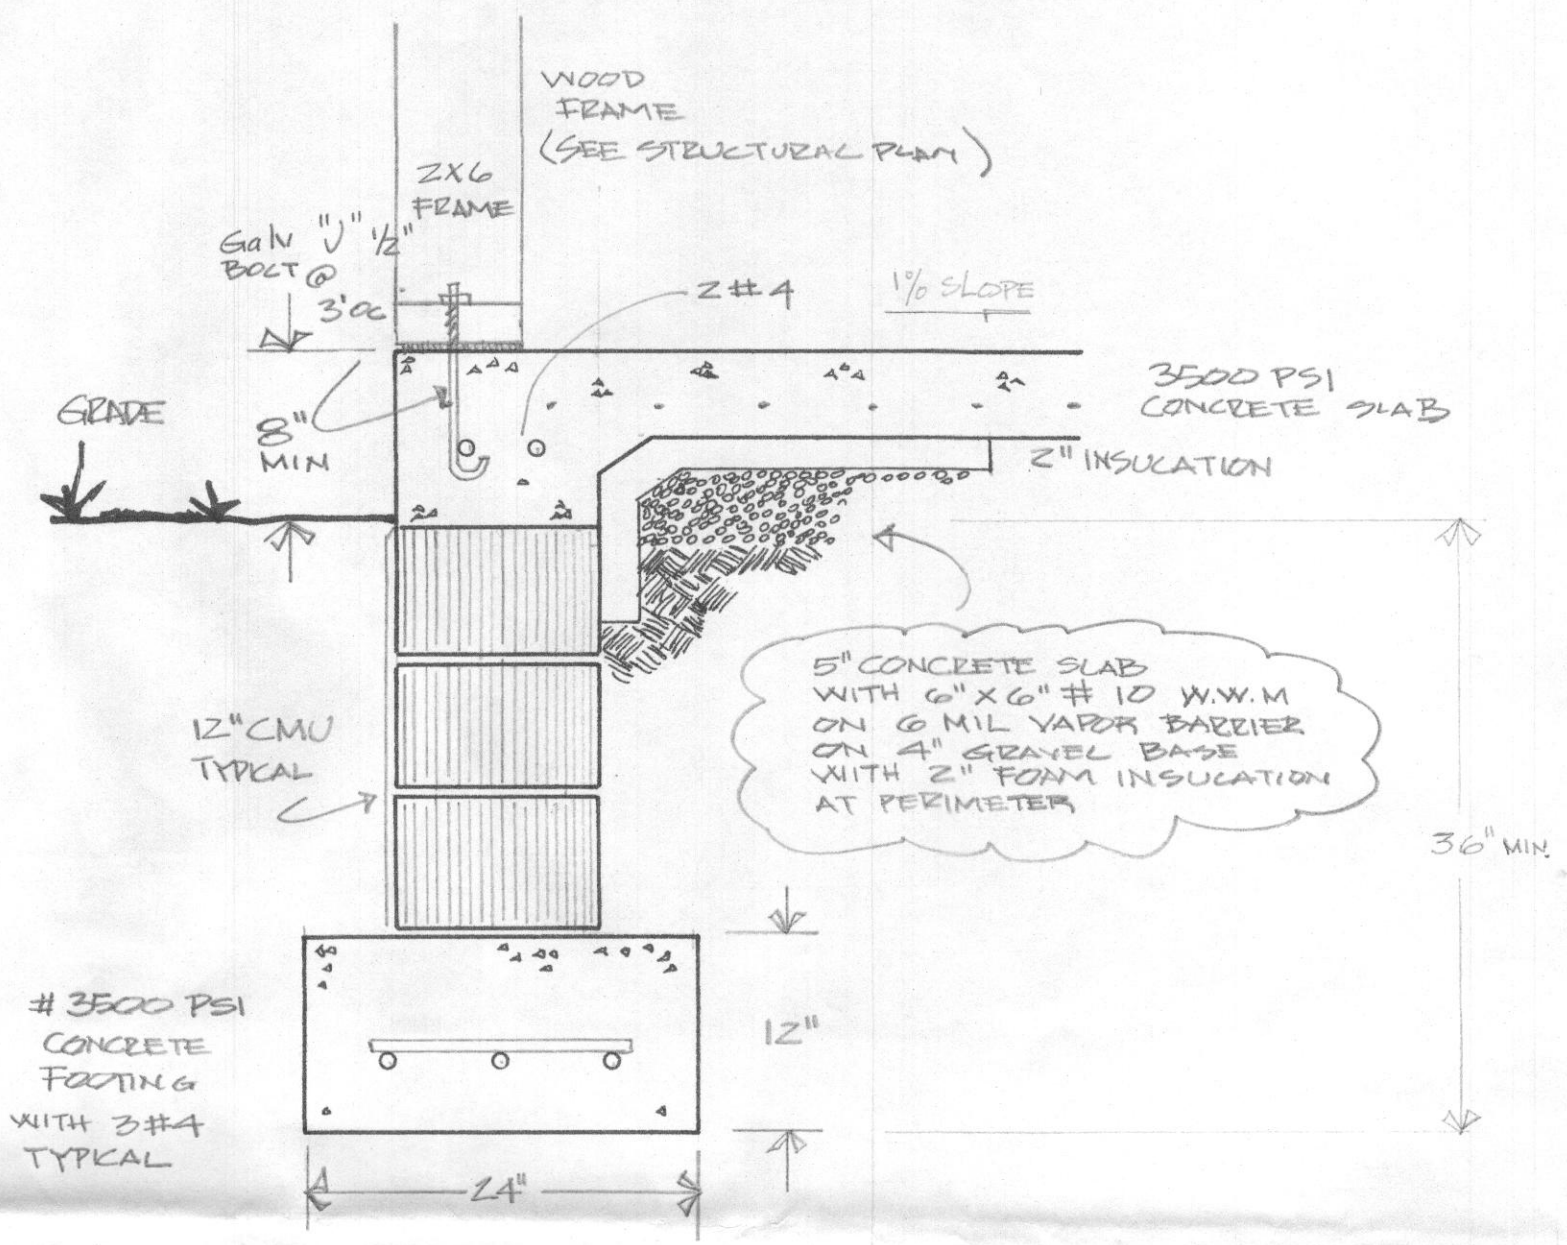 WOOD
FRAME
(SEE STRUCTURAL PLAN)
2X6
FRAME
Galv "J" 1/2"
BOLT @
3'OC
2#4
1% SLOPE
GRADE
8"
MIN
3500 PSI
CONCRETE SLAB
2" INSULATION
5" CONCRETE SLAB
WITH 6" X 6" # 10 W.W.M
ON 6 MIL VAPOR BARRIER
ON 4" GRAVEL BASE
WITH 2" FOAM INSULATION
AT PERIMETER
12" CMU
TYPICAL
36" MIN.
# 3500 PSI
CONCRETE
FOOTING
WITH 3#4
TYPICAL
12"
24"